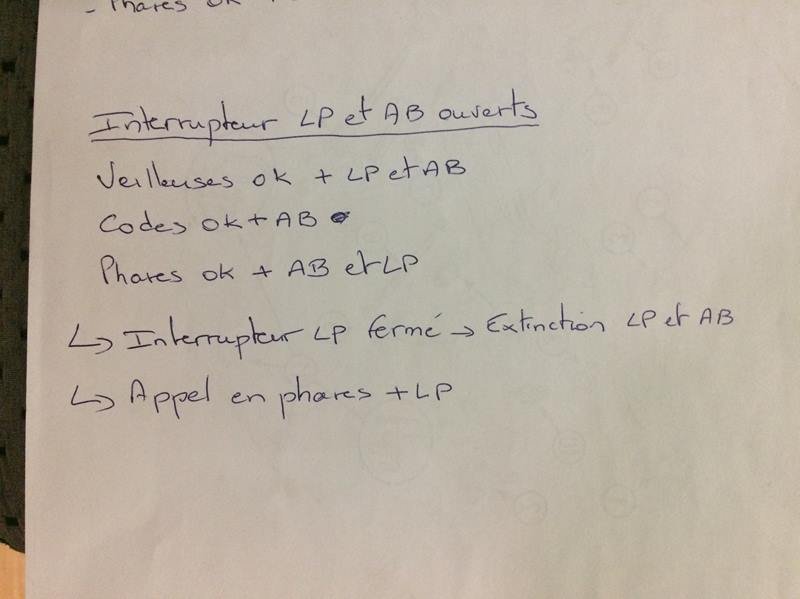 - Phares OK
Interrupteur LP et AB ouverts
Veilleuses OK + LP et AB
Codes OK + AB
Phares OK + AB et LP
↳ Interrupteur LP fermé → Extinction LP et AB
↳ Appel en phares + LP